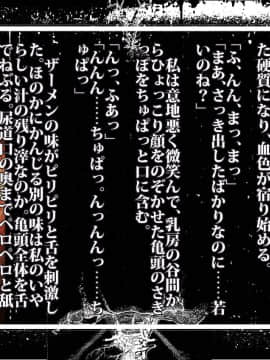 た硬質になり、血色が宿り始める。
「ふ、んん、まっ、まっ」
「まあ、さっき出したばかりなのに……若
いのね?」
　私は意地悪く微笑んで、乳房の谷間か
らひょっこり顔をのぞかせた亀頭のさき
っぽをちゅぱっと口に含む。
「んっ、ふあっ」
「んんん……ちゅぱっ。んっんんっ……ち
ゅぱっ」
　ザーメンの味がピリピリと舌を刺激し
た。ほのかにかんじる別の味は私のいや
らしい汁の残り滓なのか。亀頭全体を舌
でねぶる。尿道口の奥までペロペロと舐